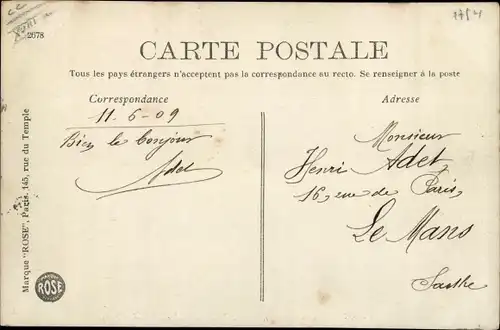 2678
1754
CARTE POSTALE
Tous les pays étrangers n'acceptent pas la correspondance au recto. Se renseigner à la poste
Correspondance
11-6-09
Bien le bonjour
Adet
Adresse
Monsieur
Henri Adet,
16, rue de Paris,
Le Mans
Sarthe
Marque "ROSE", Paris, 145, rue du Temple
ROSE